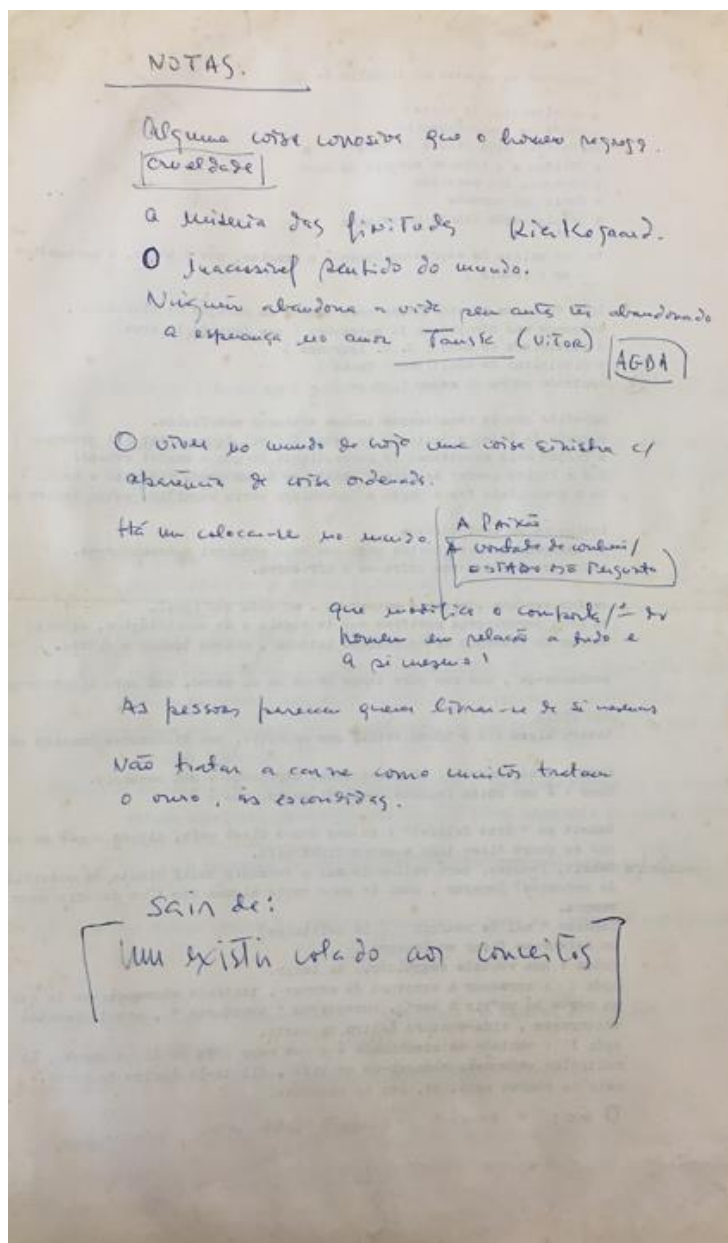 NOTAS.
Alguma coisa corrosiva que o homem segrega.
Crueldade
a miséria das finitudes Kierkegaard.
O inacessível sentido do mundo.
Ninguém abandona a vida sem antes ter abandonado
a esperança no amor Tausk (VITOR)
AGBA
O viver no mundo de hoje uma coisa sinistra c/
aparência de coisa ordenada.
Há um colocar-se no mundo
A Paixão
A vontade de conhecer/
ESTADO DE Pergunta
que modifica o comporta/to do
homem em relação a tudo e
a si mesmo!
AS pessoas parecem querer livrar-se de si mesmas
Não tratar a carne como muitos tratam
o ouro, às escondidas.
Sair de:
Um existir colado aos conceitos